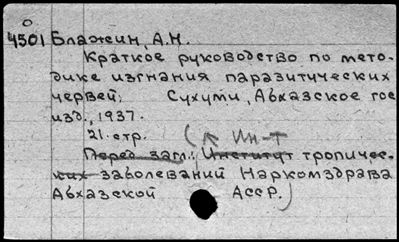 4501 Блажин, А.Н.
Краткое руководство по мето-
дике изгнания паразитических
червей. Сухуми, Абхазское гос
изд., 1937.
21. стр.
(к Ин-т
Перед загл.: Институт тропичес-
ких заболеваний Наркомздрава
Абхазской АССР.)